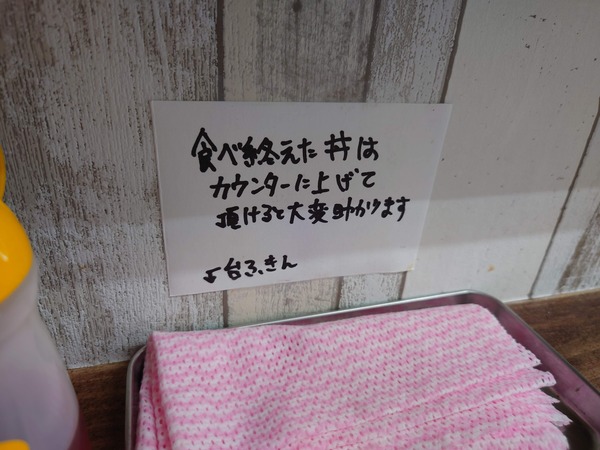 食べ終えた丼は
カウンターに上げて
頂けると大変助かります
↓台ふきん